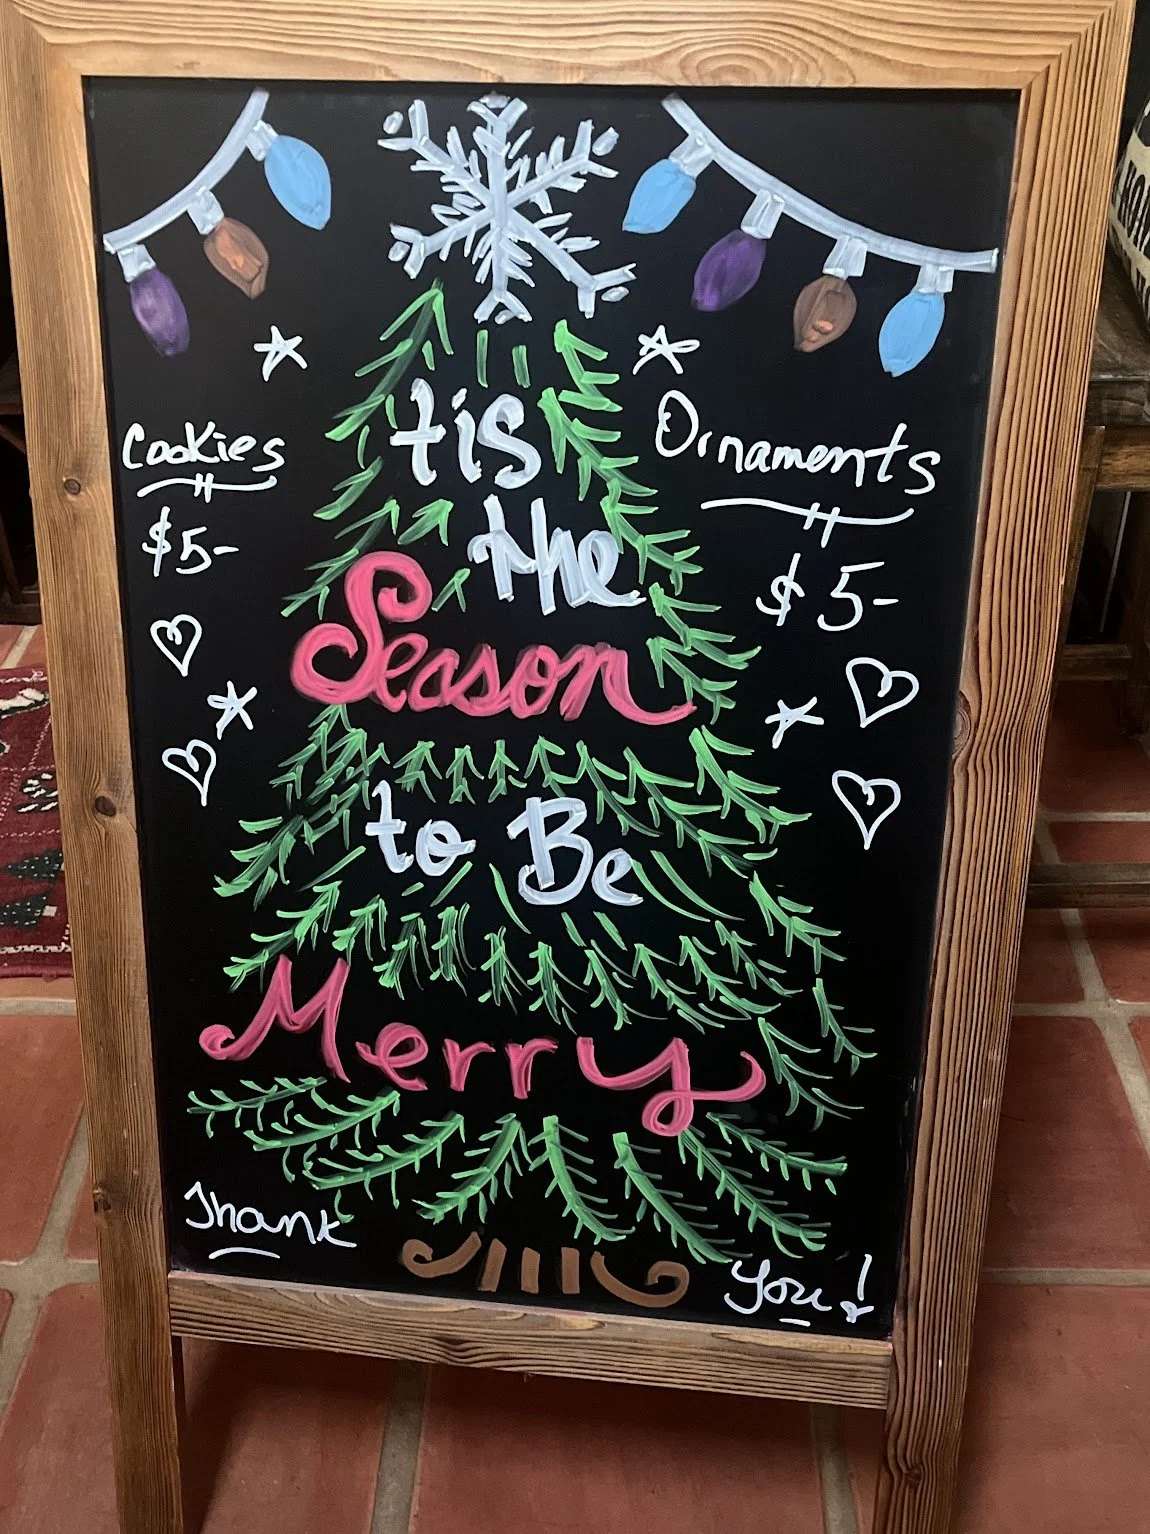 tis
the
Season
to Be
Merry
Cookies
$5-
Ornaments
$5-
Thank
You!